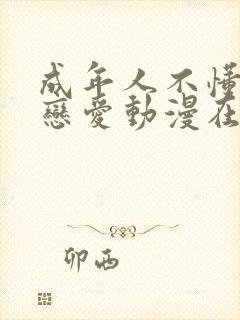 成年人不懂
戀愛動漫在
卯西